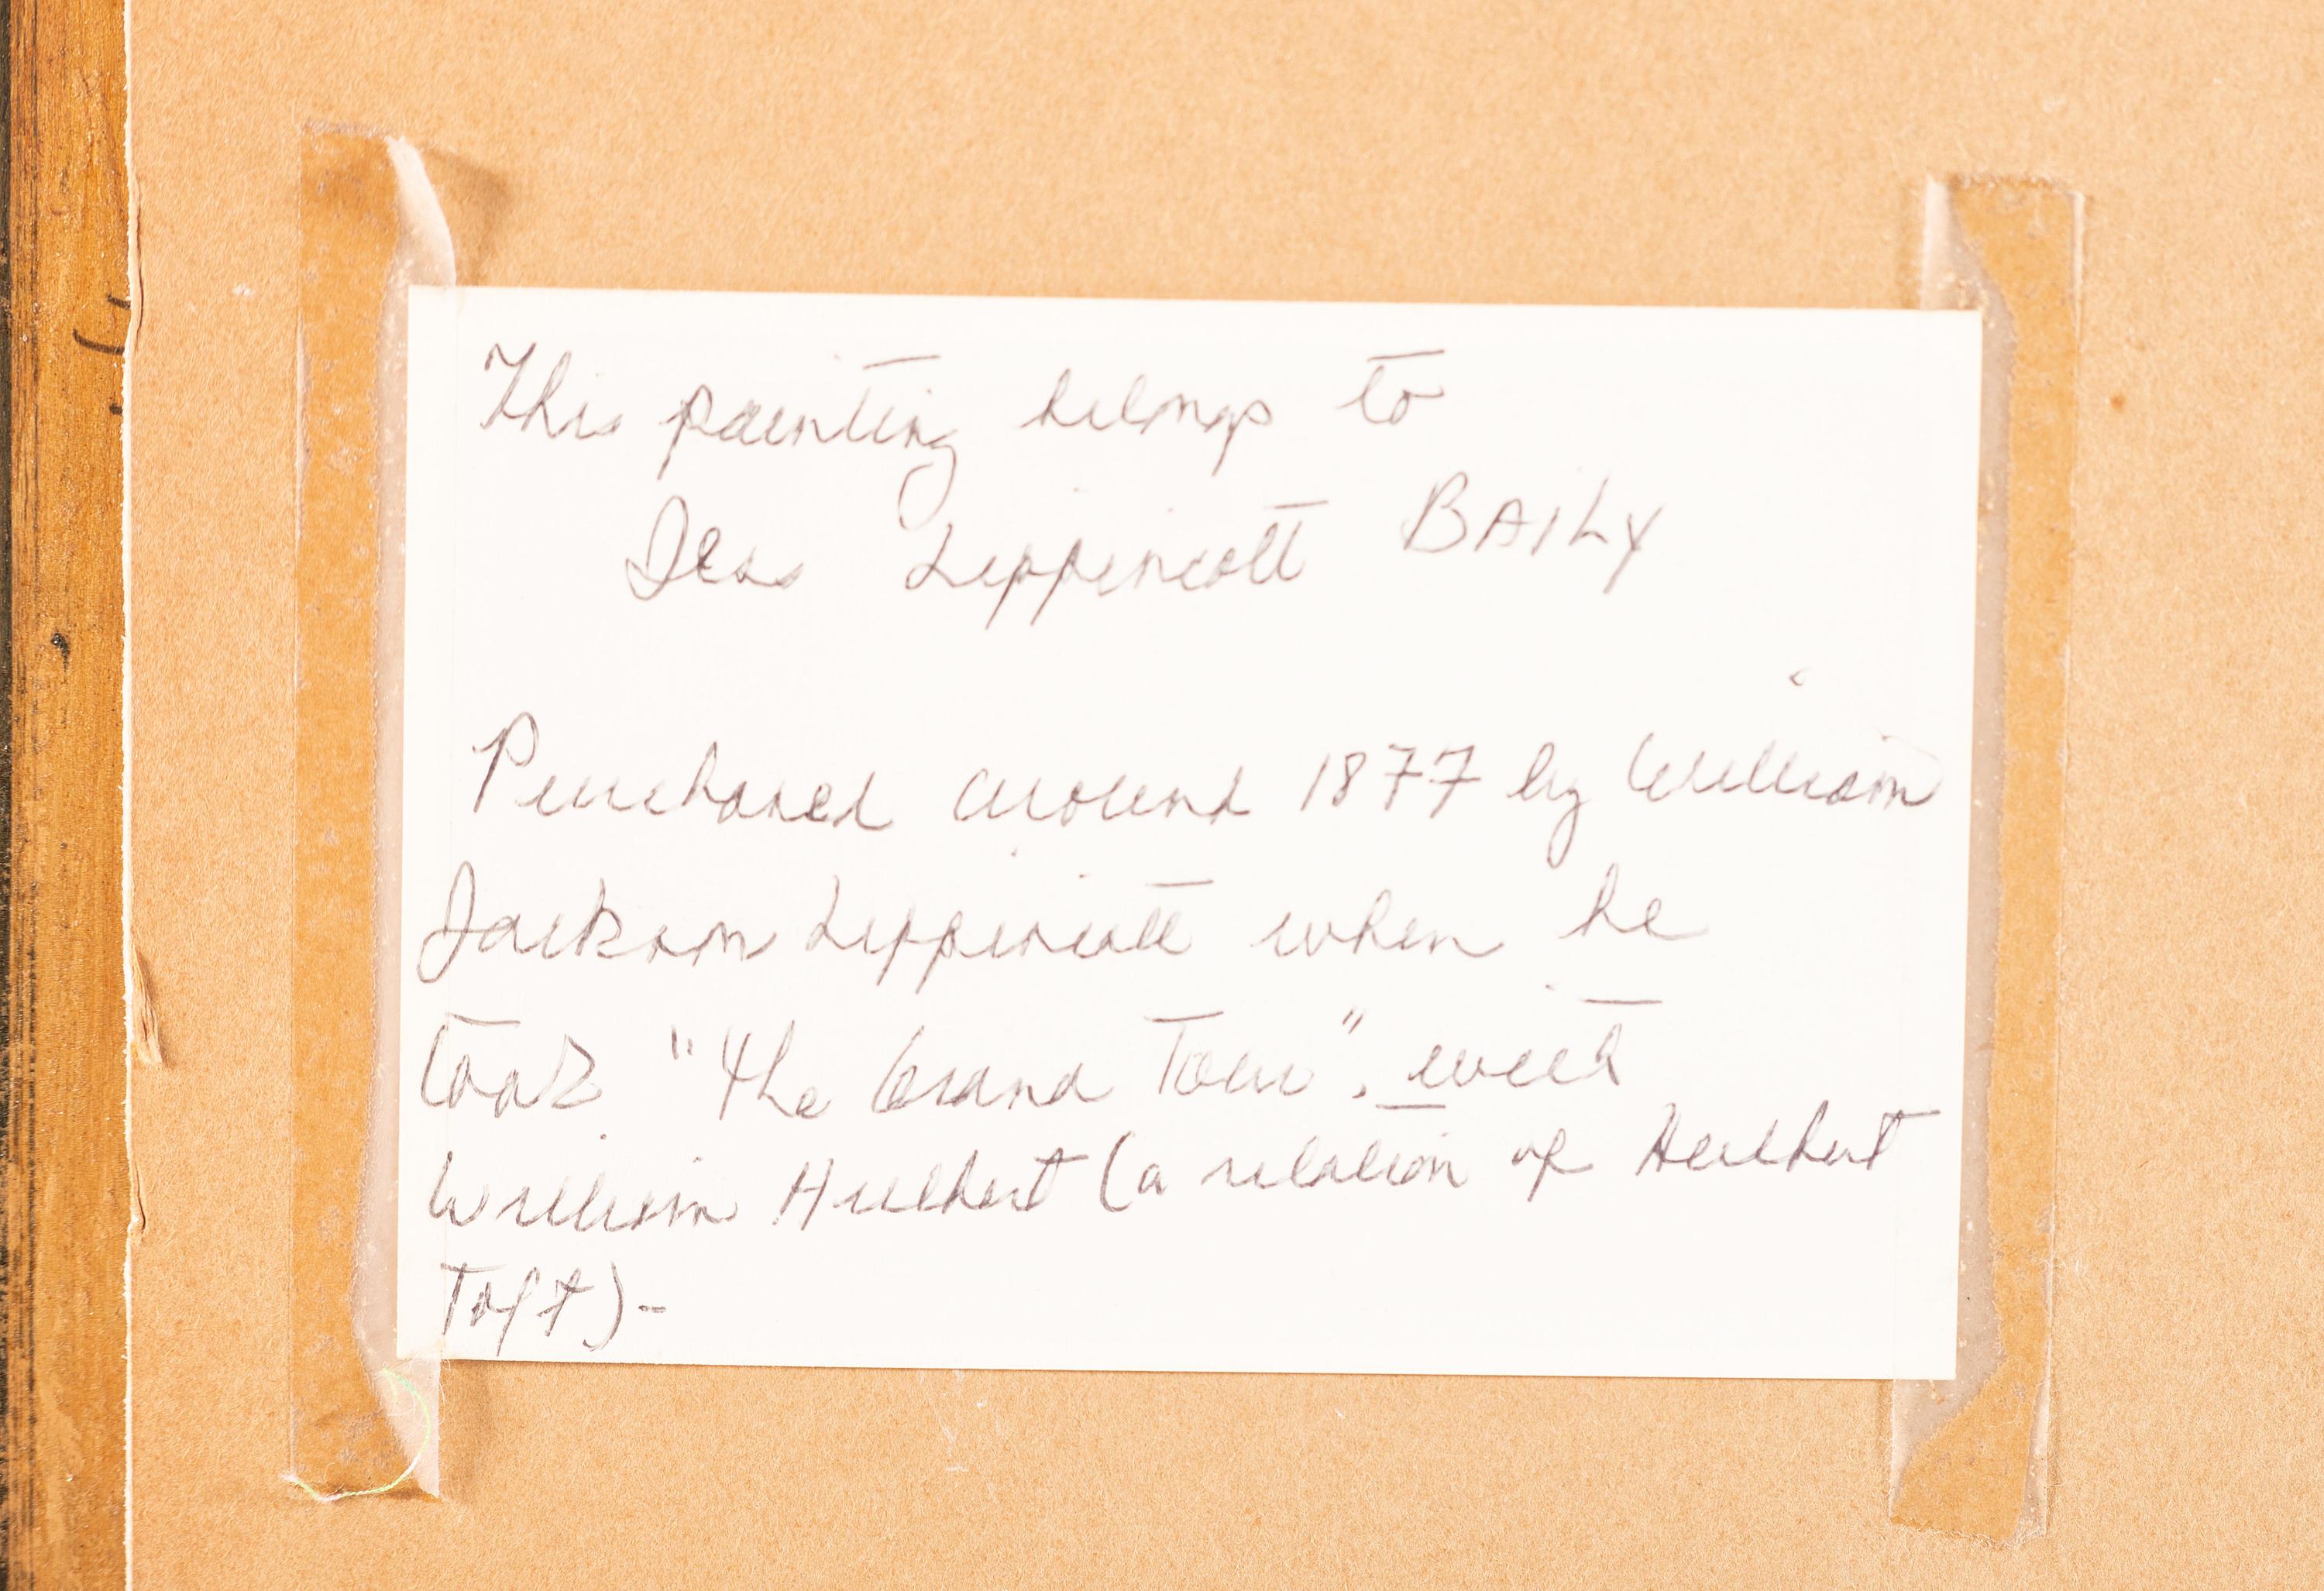 This painting belongs to
Lippincott BAILY
Purchased around 1877 by William
Jackson Lippincott when he
took "the Grand Tour", with
William Hulbert (a relation of Hulbert
Toft)-